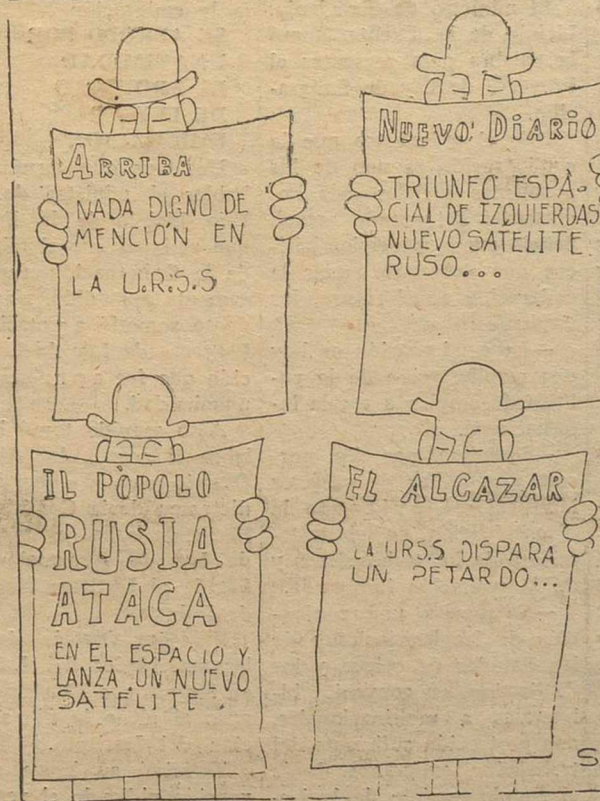 ARRIBA
NADA DIGNO DE
MENCIÓN EN
LA U.R.S.S
NUEVO DIARIO
TRIUNFO ESPA-
CIAL DE IZQUIERDAS
NUEVO SATELITE
RUSO...
IL PÒPOLO
RUSIA
ATACA
EN EL ESPACIO Y
LANZA UN NUEVO
SATELITE.
EL ALCAZAR
LA URS.S DISPARA
UN PETARDO...
S